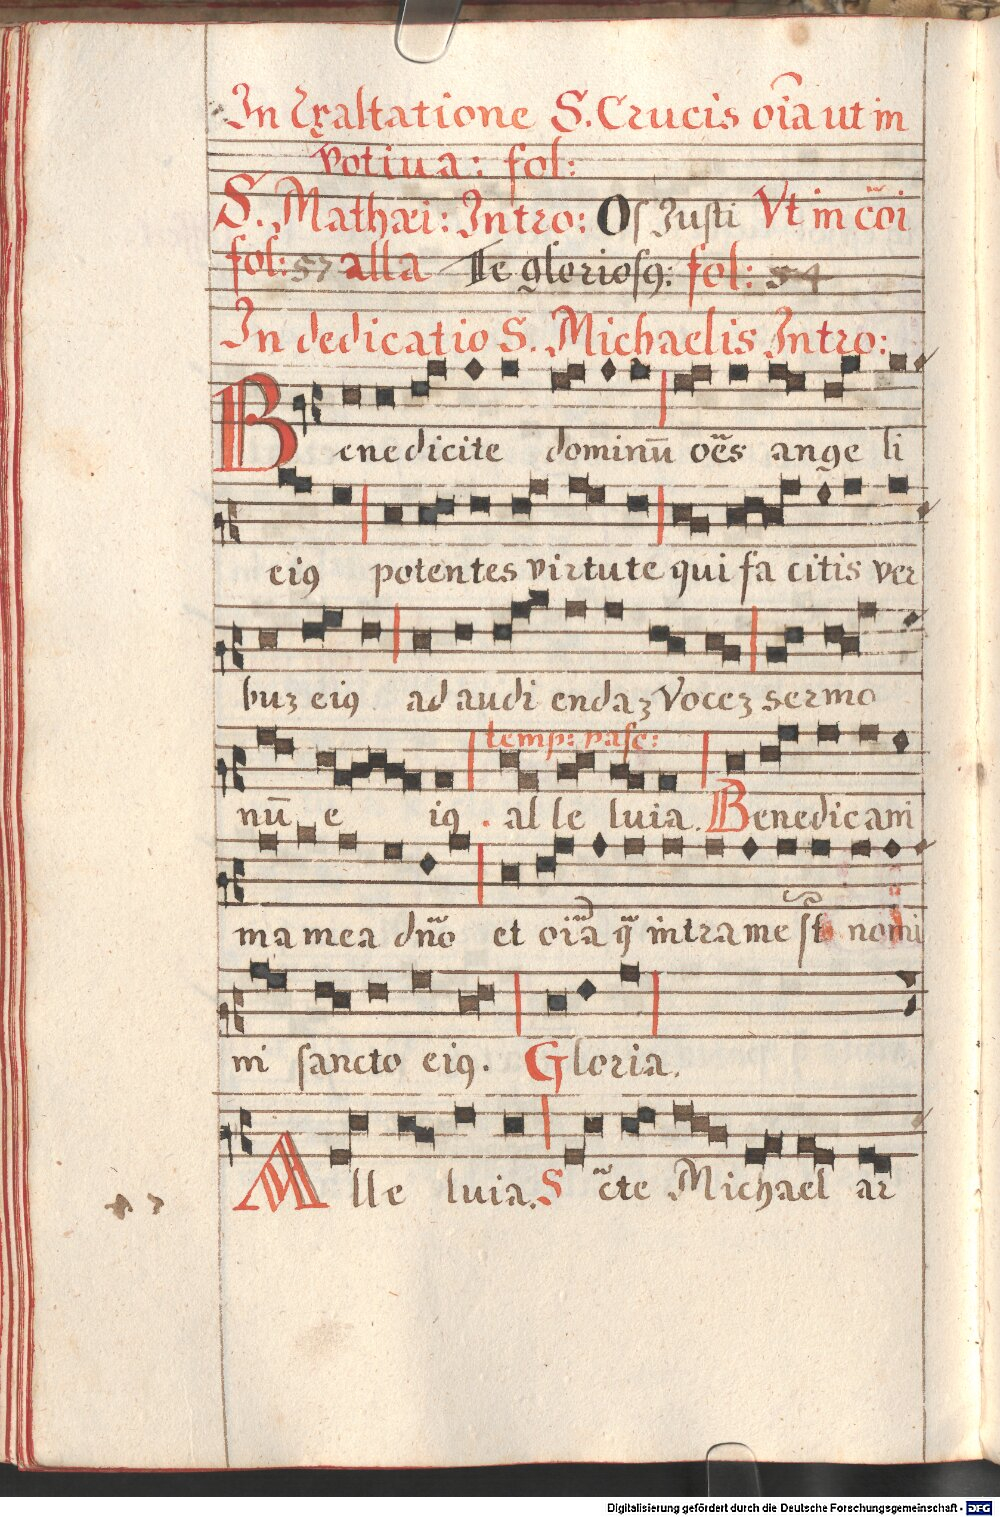 In Exaltatione S. Crucis oı̃a ut in
votiua: fol:
S. Mathæi: Intro: Os Justi Vt in cõi
fol: 57 alla Te gloriosꝯ: fol: 54
In dedicatio S. Michaelis Intro:
Benedicite dominũ oẽs ange li
eiꝯ potentes virtute qui fa citis ver
buꝫ eiꝯ ad audi endaꝫ Voceꝫ sermo
nũ e iꝯ. al le luia. Benedic ani
temp: pasc:
ma mea dño et oı̃a q̃ intra me st nomi
ni sancto eiꝯ. Gloria.
Alle luia. S c̃te Michael ar
Digitalisierung gefördert durch die Deutsche Forschungsgemeinschaft - DFG